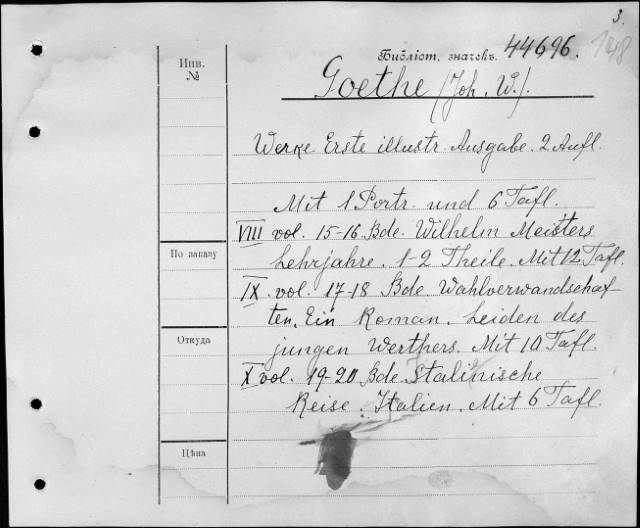 3.
Библіот. значекъ 44696. 148
Инв.
№
Goethe (Joh. W.).
Werke Erste illustr. Ausgabe. 2 Aufl.
Mit 1 Portr. und 6 Tafl.
VIII vol. 15-16 Bde. Wilhelm Meisters
По заказу
Lehrjahre. 1-2 Theile. Mit 12 Tafl.
IX. vol. 17-18 Bde Wahlverwandschaf
ten. Ein Roman. Leiden des
Откуда
jungen Werthers. Mit 10 Tafl.
X vol. 19-20 Bde. Stalinische
Reise. Italien. Mit 6 Tafl.
Цѣна